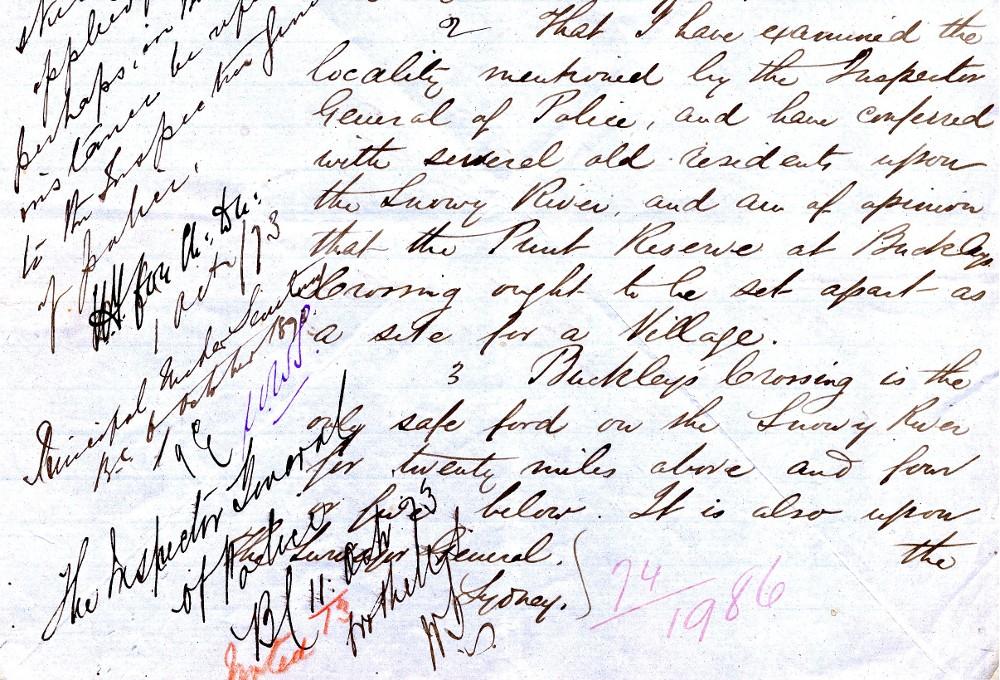 2 That I have examined the
locality mentioned by the Inspector
General of Police, and have conferred
with several old residents upon
the Snowy River, and am of opinion
that the Punt Reserve at Buckleys
Crossing ought to be set apart as
a site for a Village.
3 Buckley's Crossing is the
only safe ford on the Snowy River
for twenty miles above and four
or five below. It is also upon
the
The Surveyor General.
Sydney.
74/1986
applied
perhaps in
instance be
to the Inspector Genl
of police.
for
1 Oct /73
Principal Under Secretary
BC 6 October 187
The Inspector General
of Police
BC 11. Oct 73
Noted 73